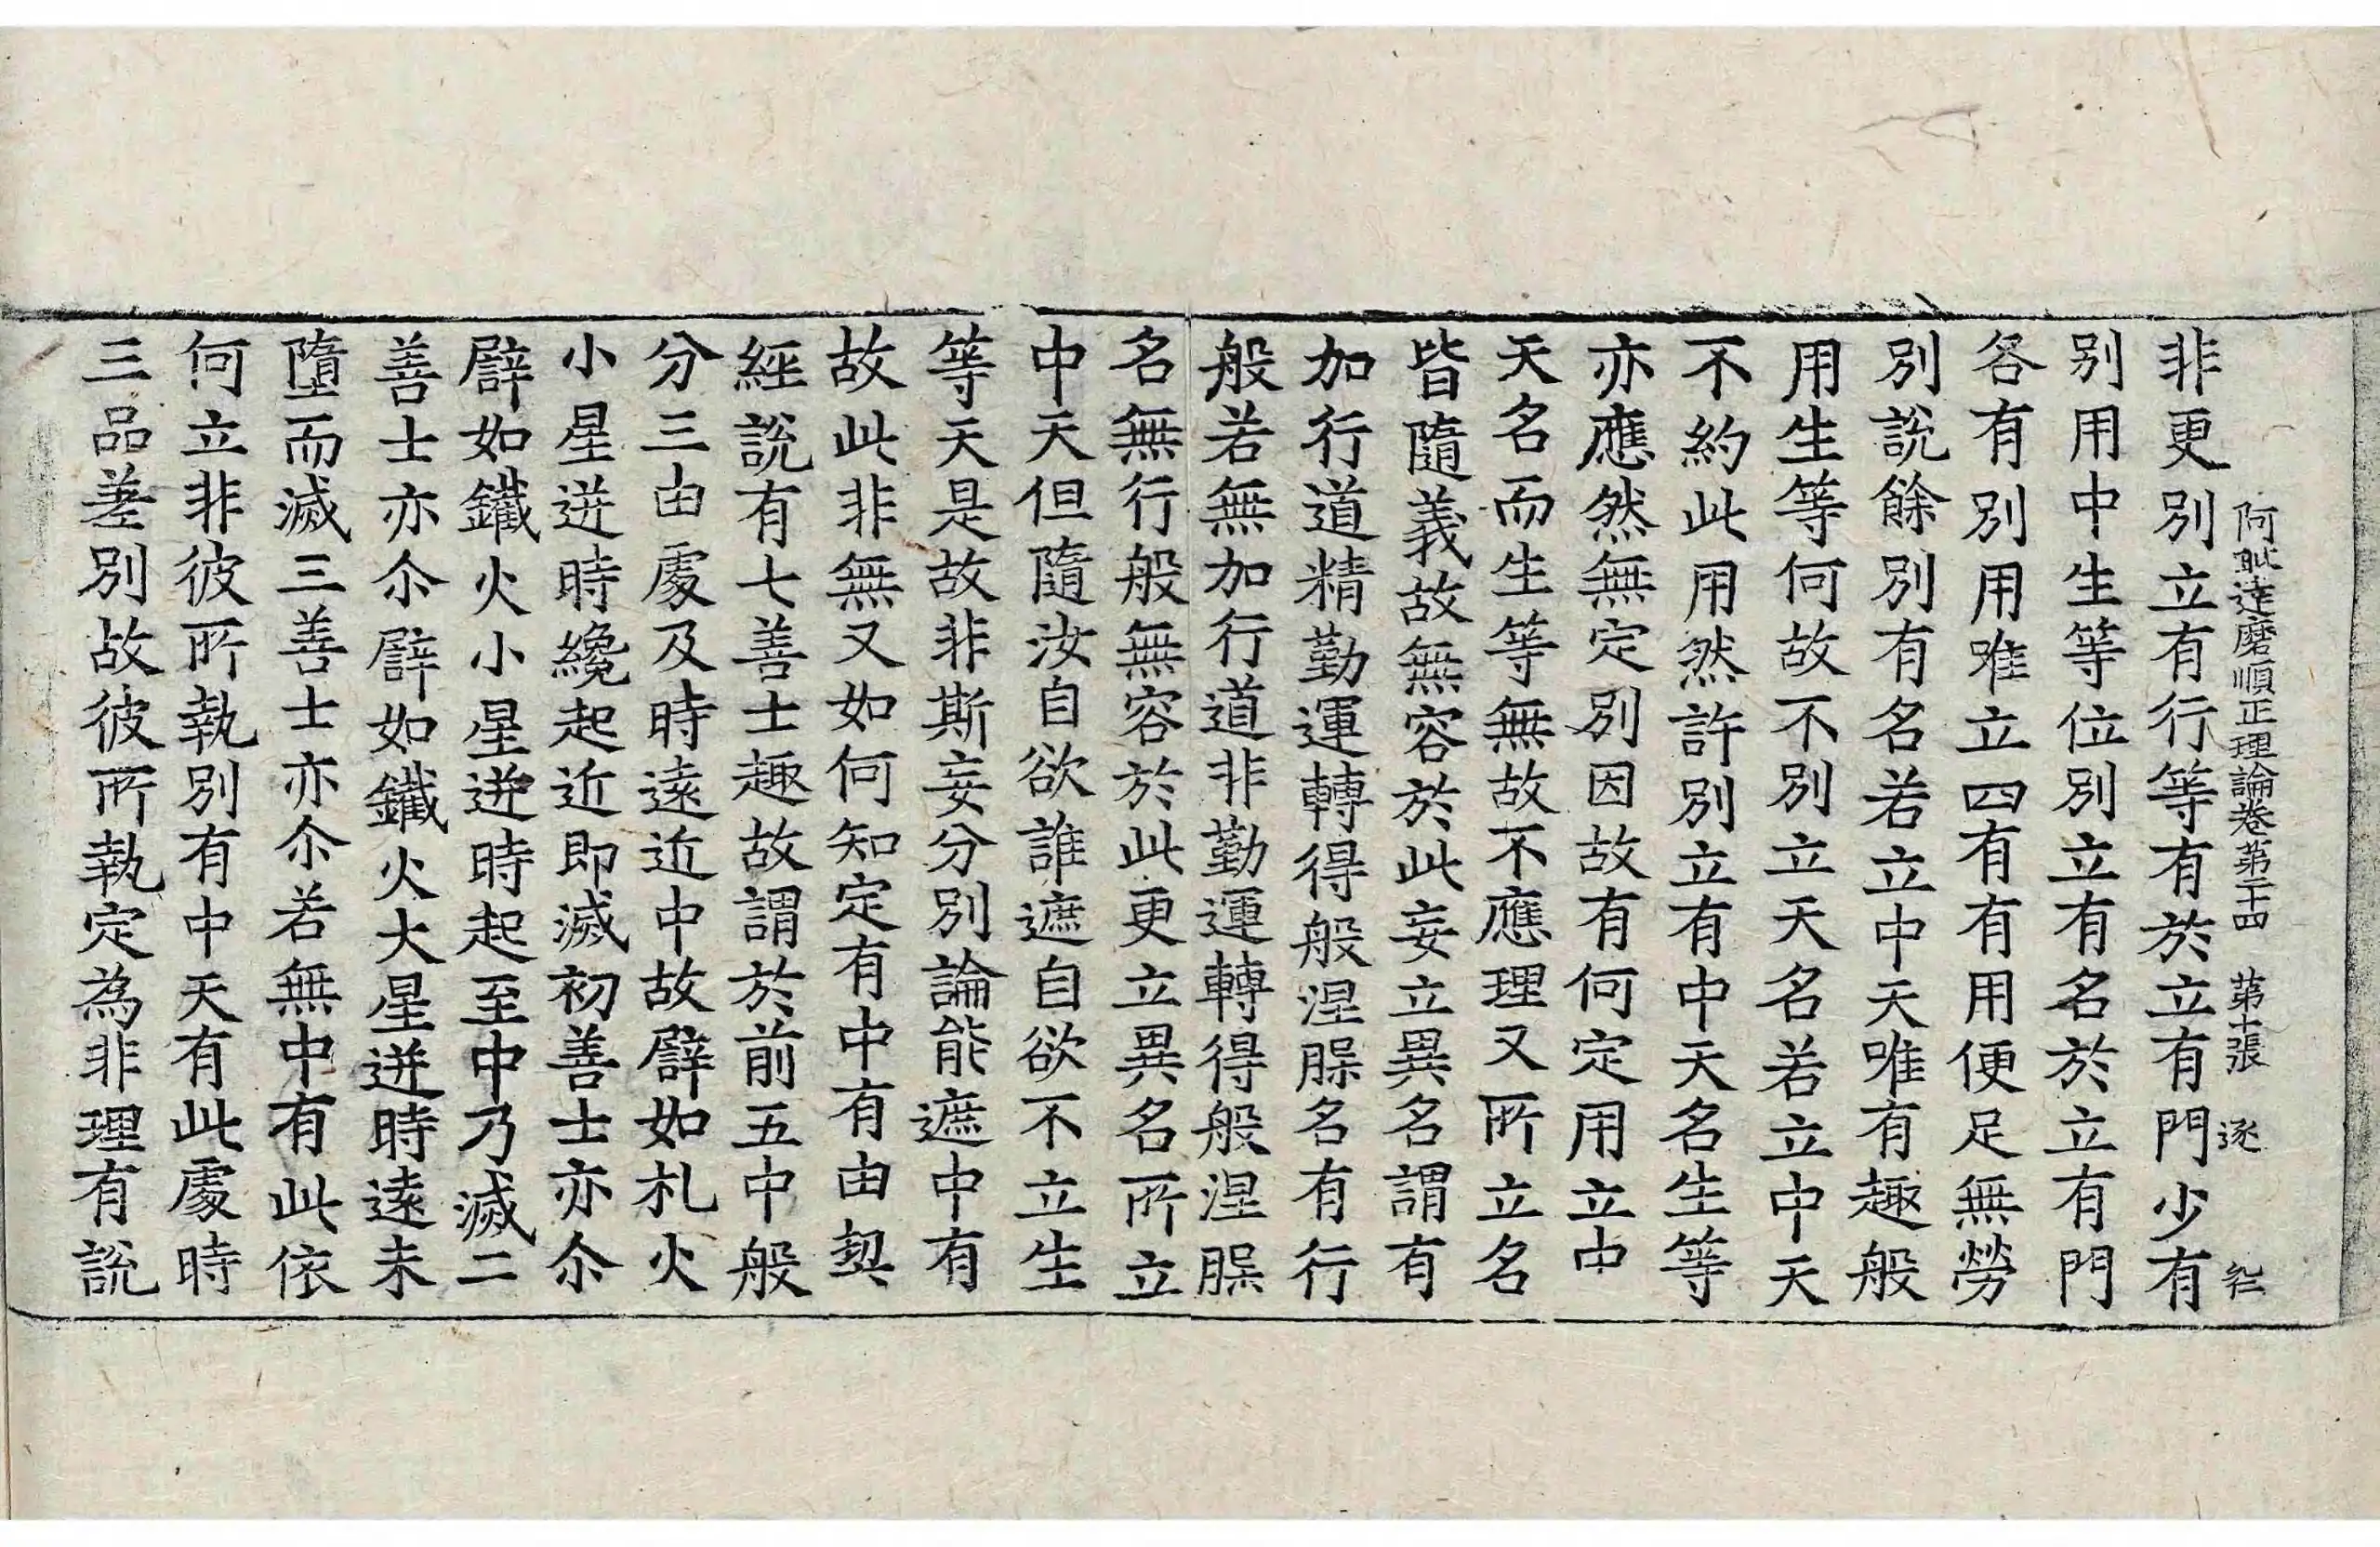 阿毗達磨順正理論卷第二十四 第十張 逐
非更別立有行等有於立有門少有
別用中生等位別立有名於立有門
各有別用唯立四有有用便足無勞
別說餘別有名若立中天唯有趣般
用生等何故不別立天名若立中天
不約此用然許別立有中天名生等
亦應然無定別因故有何定用立中
天名而生等無故不應理又所立名
皆隨義故無容於此妄立異名謂有
加行道精勤運轉得般涅槃名有行
般若無加行道非勤運轉得般涅槃
名無行般無容於此更立異名所立
中天但隨汝自欲誰遮自欲不立生
等天是故非斯妄分別論能遮中有
故此非無又如何知定有中有由契
經說有七善士趣故謂於前五中般
分三由處及時遠近中故譬如札火
小星迸時纔起近即滅初善士亦尒
譬如鐵火小星迸時起至中乃滅二
善士亦尒譬如鐵火大星迸時遠未
墮而滅三善士亦尒若無中有此依
何立非彼所執別有中天有此處時
三品差別故彼所執定為非理有說